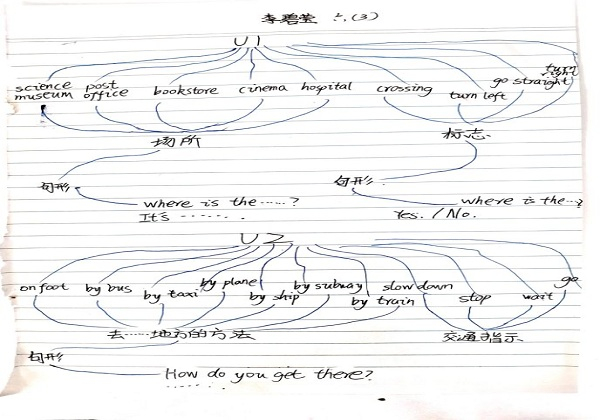 李碧莹 六.(3)
U1
science museum
post office
bookstore
cinema
hospital
crossing
turn left
go straight
turn right
场所
标志
句形
where is the ......?
It's .......
句形
where is the ...?
Yes. / No.
U2
on foot
by bus
by taxi
by plane
by ship
by subway
by train
slow down
stop
wait
go
去......地方的方法
交通指示
句形
How do you get there?
......